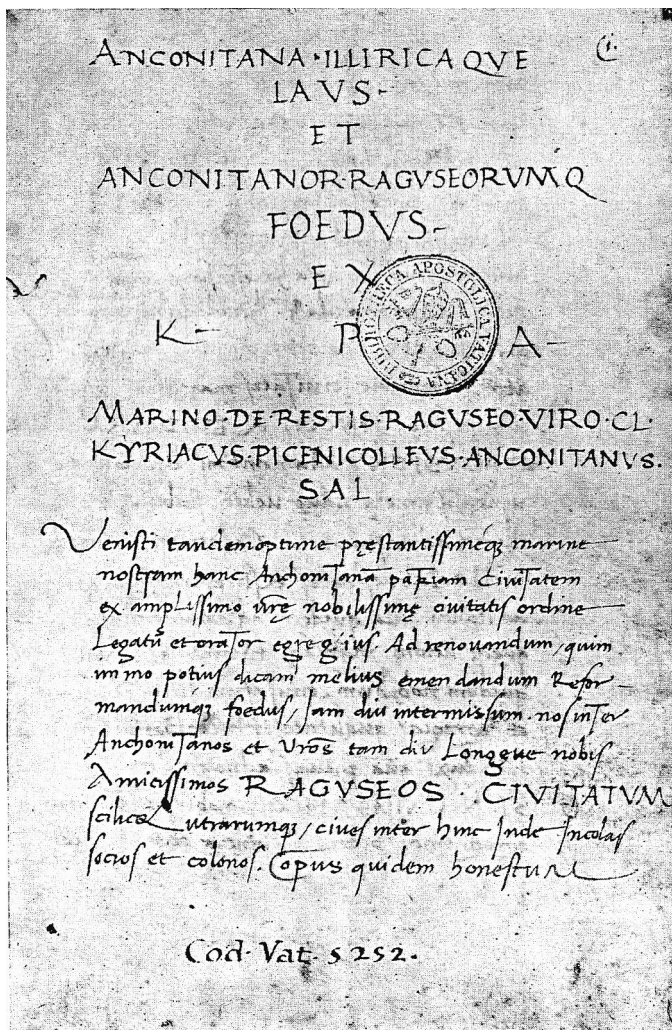 ANCONITANA · ILLIRICAQVE
LAVS ~
ET
ANCONITANOR · RAGVSEORVMQ
FOEDVS ~
EX
K ~ P A ~
BIBLIOTECA APOSTOLICA VATICANA
MARINO · DE RESTIS · RAGVSEO · VIRO · CL ·
KYRIACVS · PICENICOLLEVS · ANCONITANVS ·
SAL
Venisti tandem optime pręstantissimeq; marine
nostram hanc Anchonitanã patriam Civitatem
ex amplissimo vr̃ę nobilissimę civitatis ordine
Legatũ et orator egregius. Ad renovandum / quim
immo potius dicam melius emendandum Refor
mandumq; foedus / Jam diu intermissum · nos inter
Anchonitanos et Vr̃os tam diu Longque nobis
Amicissimos RAGVSEOS · CIVITATVM
utrarumq; / cives inter hinc Inde Incolas
socios et colonos. Opus quidem honestum
Cod · Vat · 5252 ·